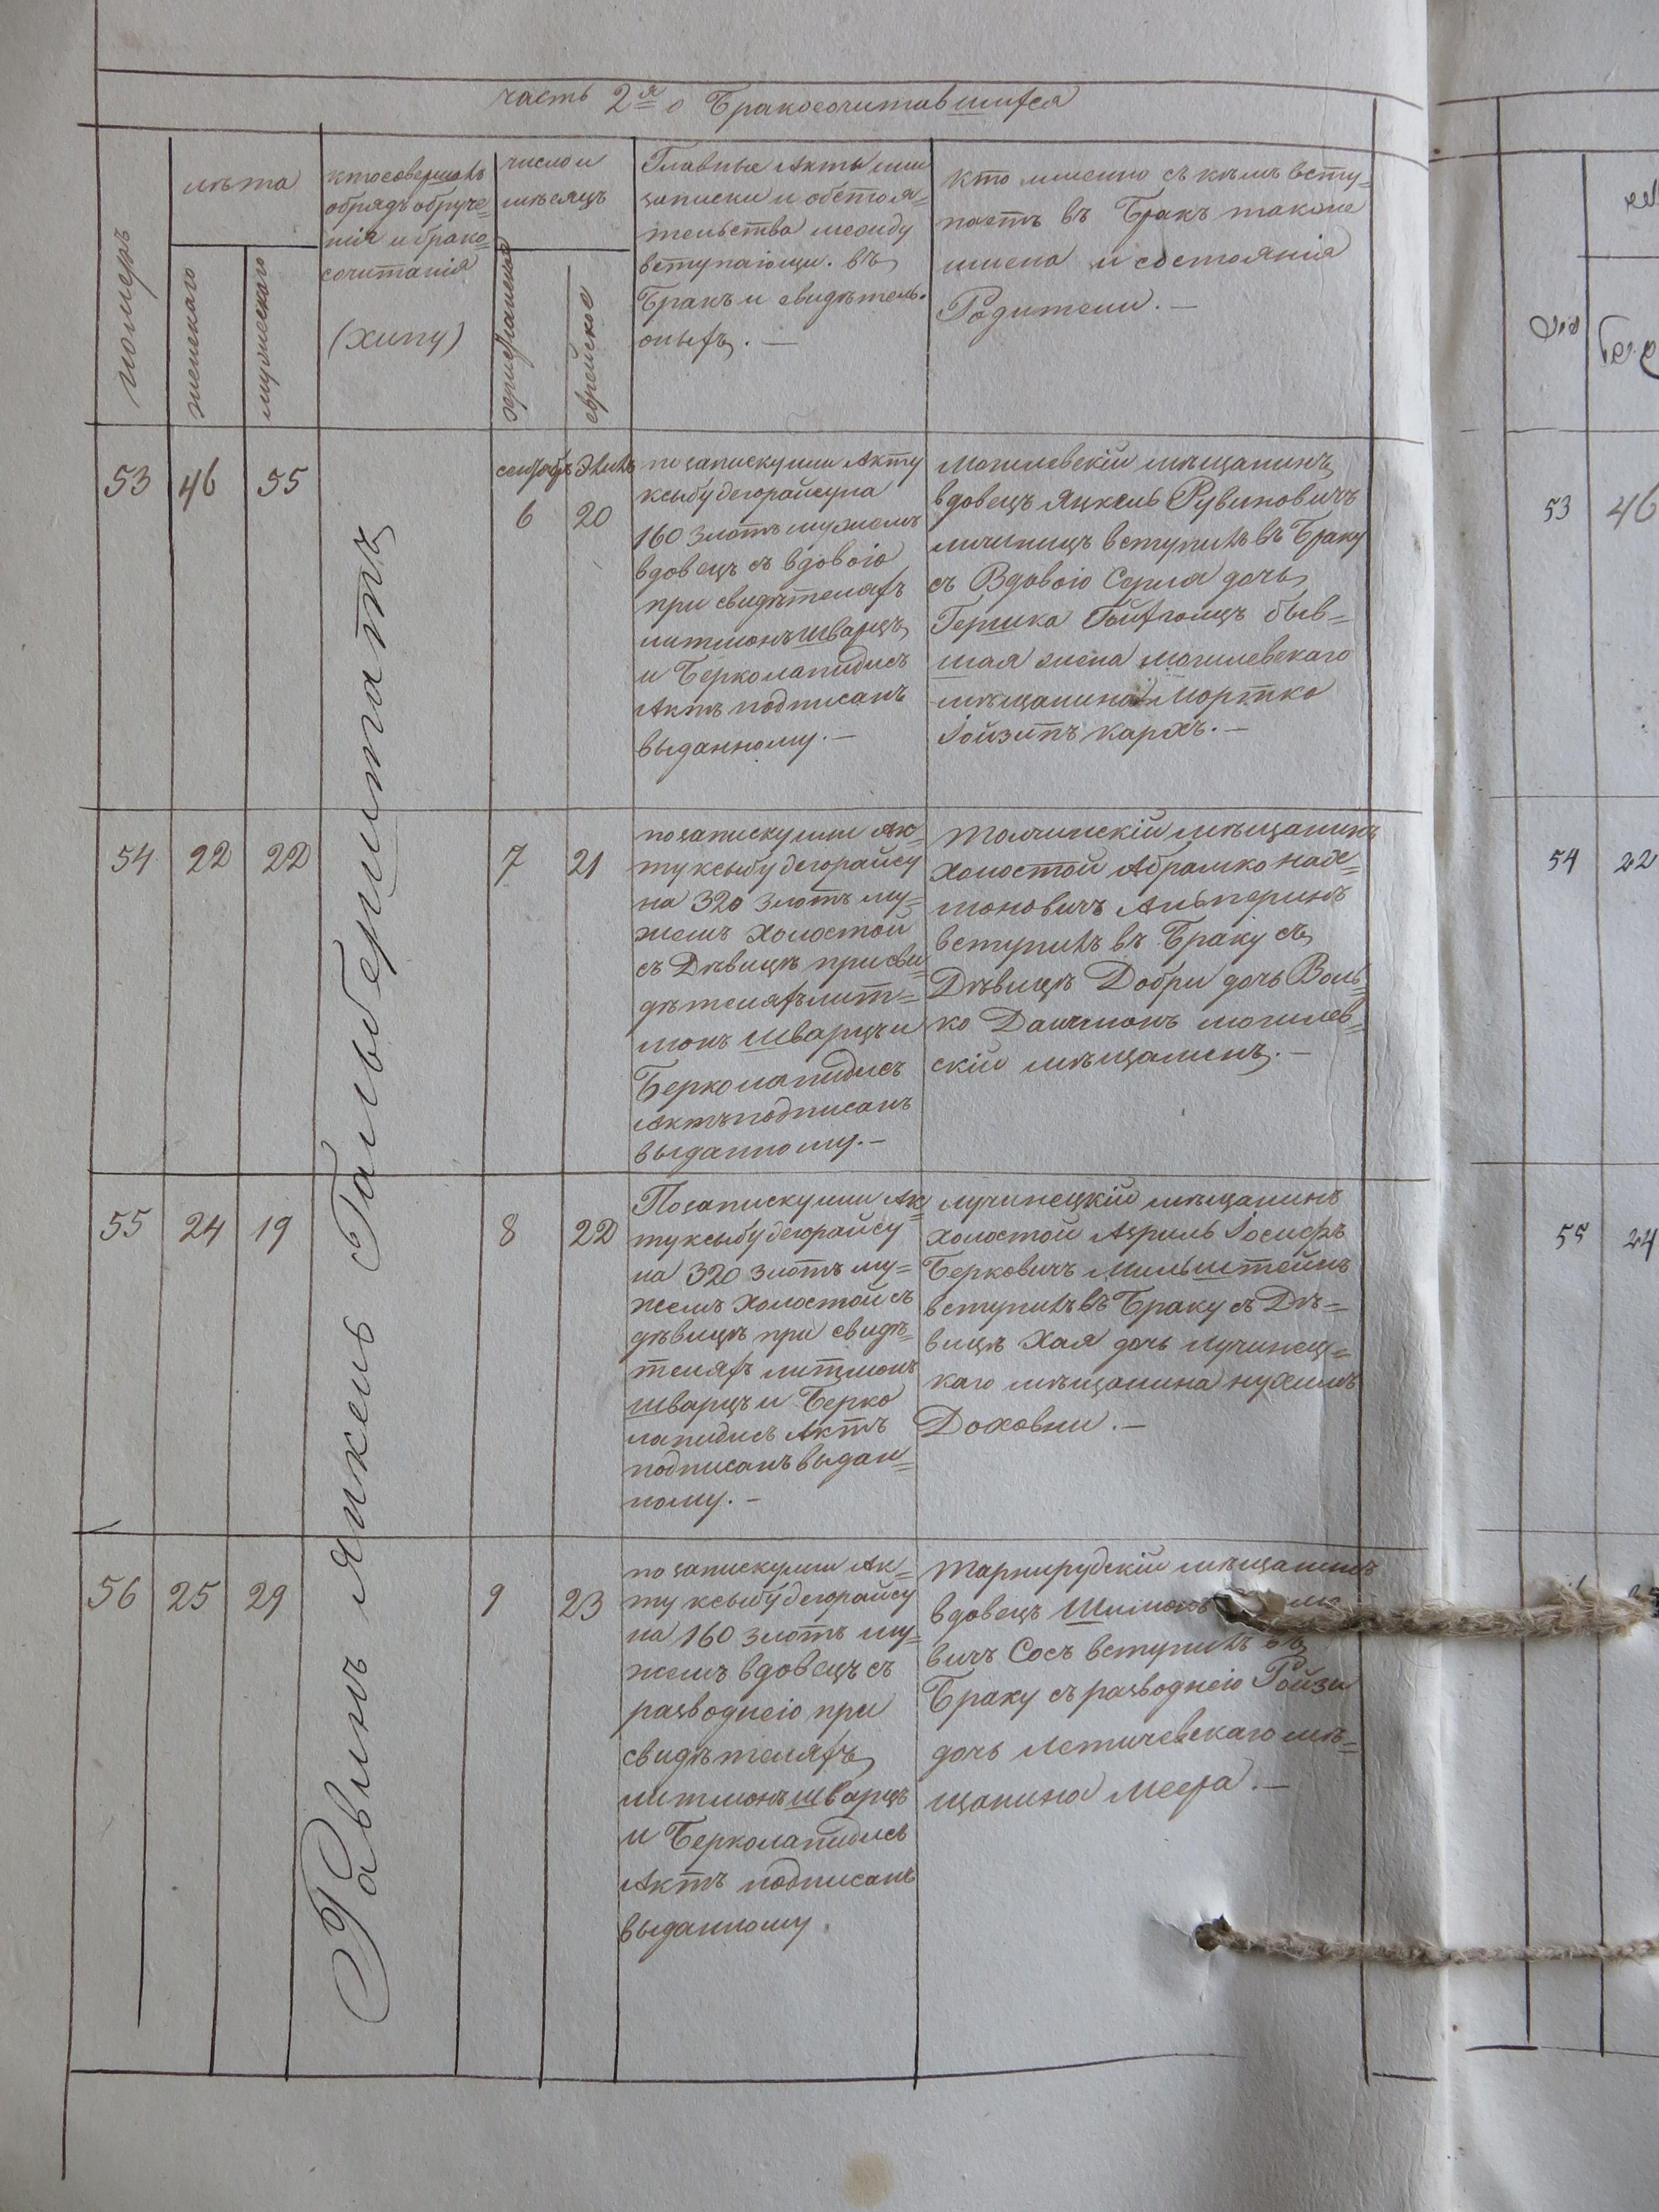 часть 2я о Бракосочитавшихся
номеръ
лѣта
женскаго
мужескаго
кто совершалъ
обрядъ обруче=
нія и брако=
сочитанія
(хипу)
число и
мѣсяцъ
христіанское
еврейское
Главные Акты или
записки и обстоя=
тельства между
вступающи. въ
Бракъ и свидѣтель.
оныхъ. —
кто именно съ кѣмъ всту=
паетъ въ Бракъ такоже
имена и состоянія
Родители. —
Равинъ Янкель Гальберштатъ
53 46 55
сентябрь Элилъ
6 20
по записку или Акту
ксыбу деорайсу на
160 злотъ мужемъ
вдовецъ съ вдовою
при свидѣтеляхъ
литмонъ Шварцъ
и Берко лапидисъ
Актъ подписанъ
выданному. —
могилевскій мѣщанинъ
вдовецъ Янкель Рувиновичъ
вступилъ въ Браку
съ Вдовою Серля дочь
Гершка быв=
шая жена могилевскаго
мѣщанина Мортко
54 22 22
7 21
по записку или Ак=
ту ксыбу деорайсу
на 320 злотъ му=
жемъ холостой
съ Дѣвицѣ при сви=
дѣтеляхъ лит=
монъ Шварцъ и
Берко лапидисъ
Актъ подписанъ
выданному. —
мѣщанинъ
холостой Абрамко Нах=
моновичъ Альперинъ
вступилъ въ Браку съ
Дѣвицѣ Добри дочь Воль=
ко могилев=
скій мѣщанинъ. —
55 24 19
8 22
По записку или Ак=
ту ксыбу деорайсу
на 320 злотъ му=
жемъ холостой съ
дѣвицѣ при свидѣ=
теляхъ литмонъ
Шварцъ и Берко
лапидисъ Актъ
подписанъ выдан=
ному. —
лучинецкій мѣщанинъ
холостой Азриль Іосифъ
Берковичъ Мильштейнъ
вступилъ въ Браку съ Дѣ=
вицѣ Хая дочь лучинец=
каго мѣщанина нухимъ
Доховни. —
56 25 29
9 23
по записку или Ак=
ту ксыбу деорайсу
на 160 злотъ му=
жемъ вдовецъ съ
разводнею при
свидѣтеляхъ
литмонъ Шварцъ
и Берко лапидисъ
Актъ подписанъ
выданному.
тарнирудскій мѣщанинъ
вдовецъ Шлимонъ
вичъ Сосъ вступилъ въ
Браку съ разводнею Ройзи
дочь летичевскаго мѣ=
щанина Меера. —
53 46
54 22
55 24